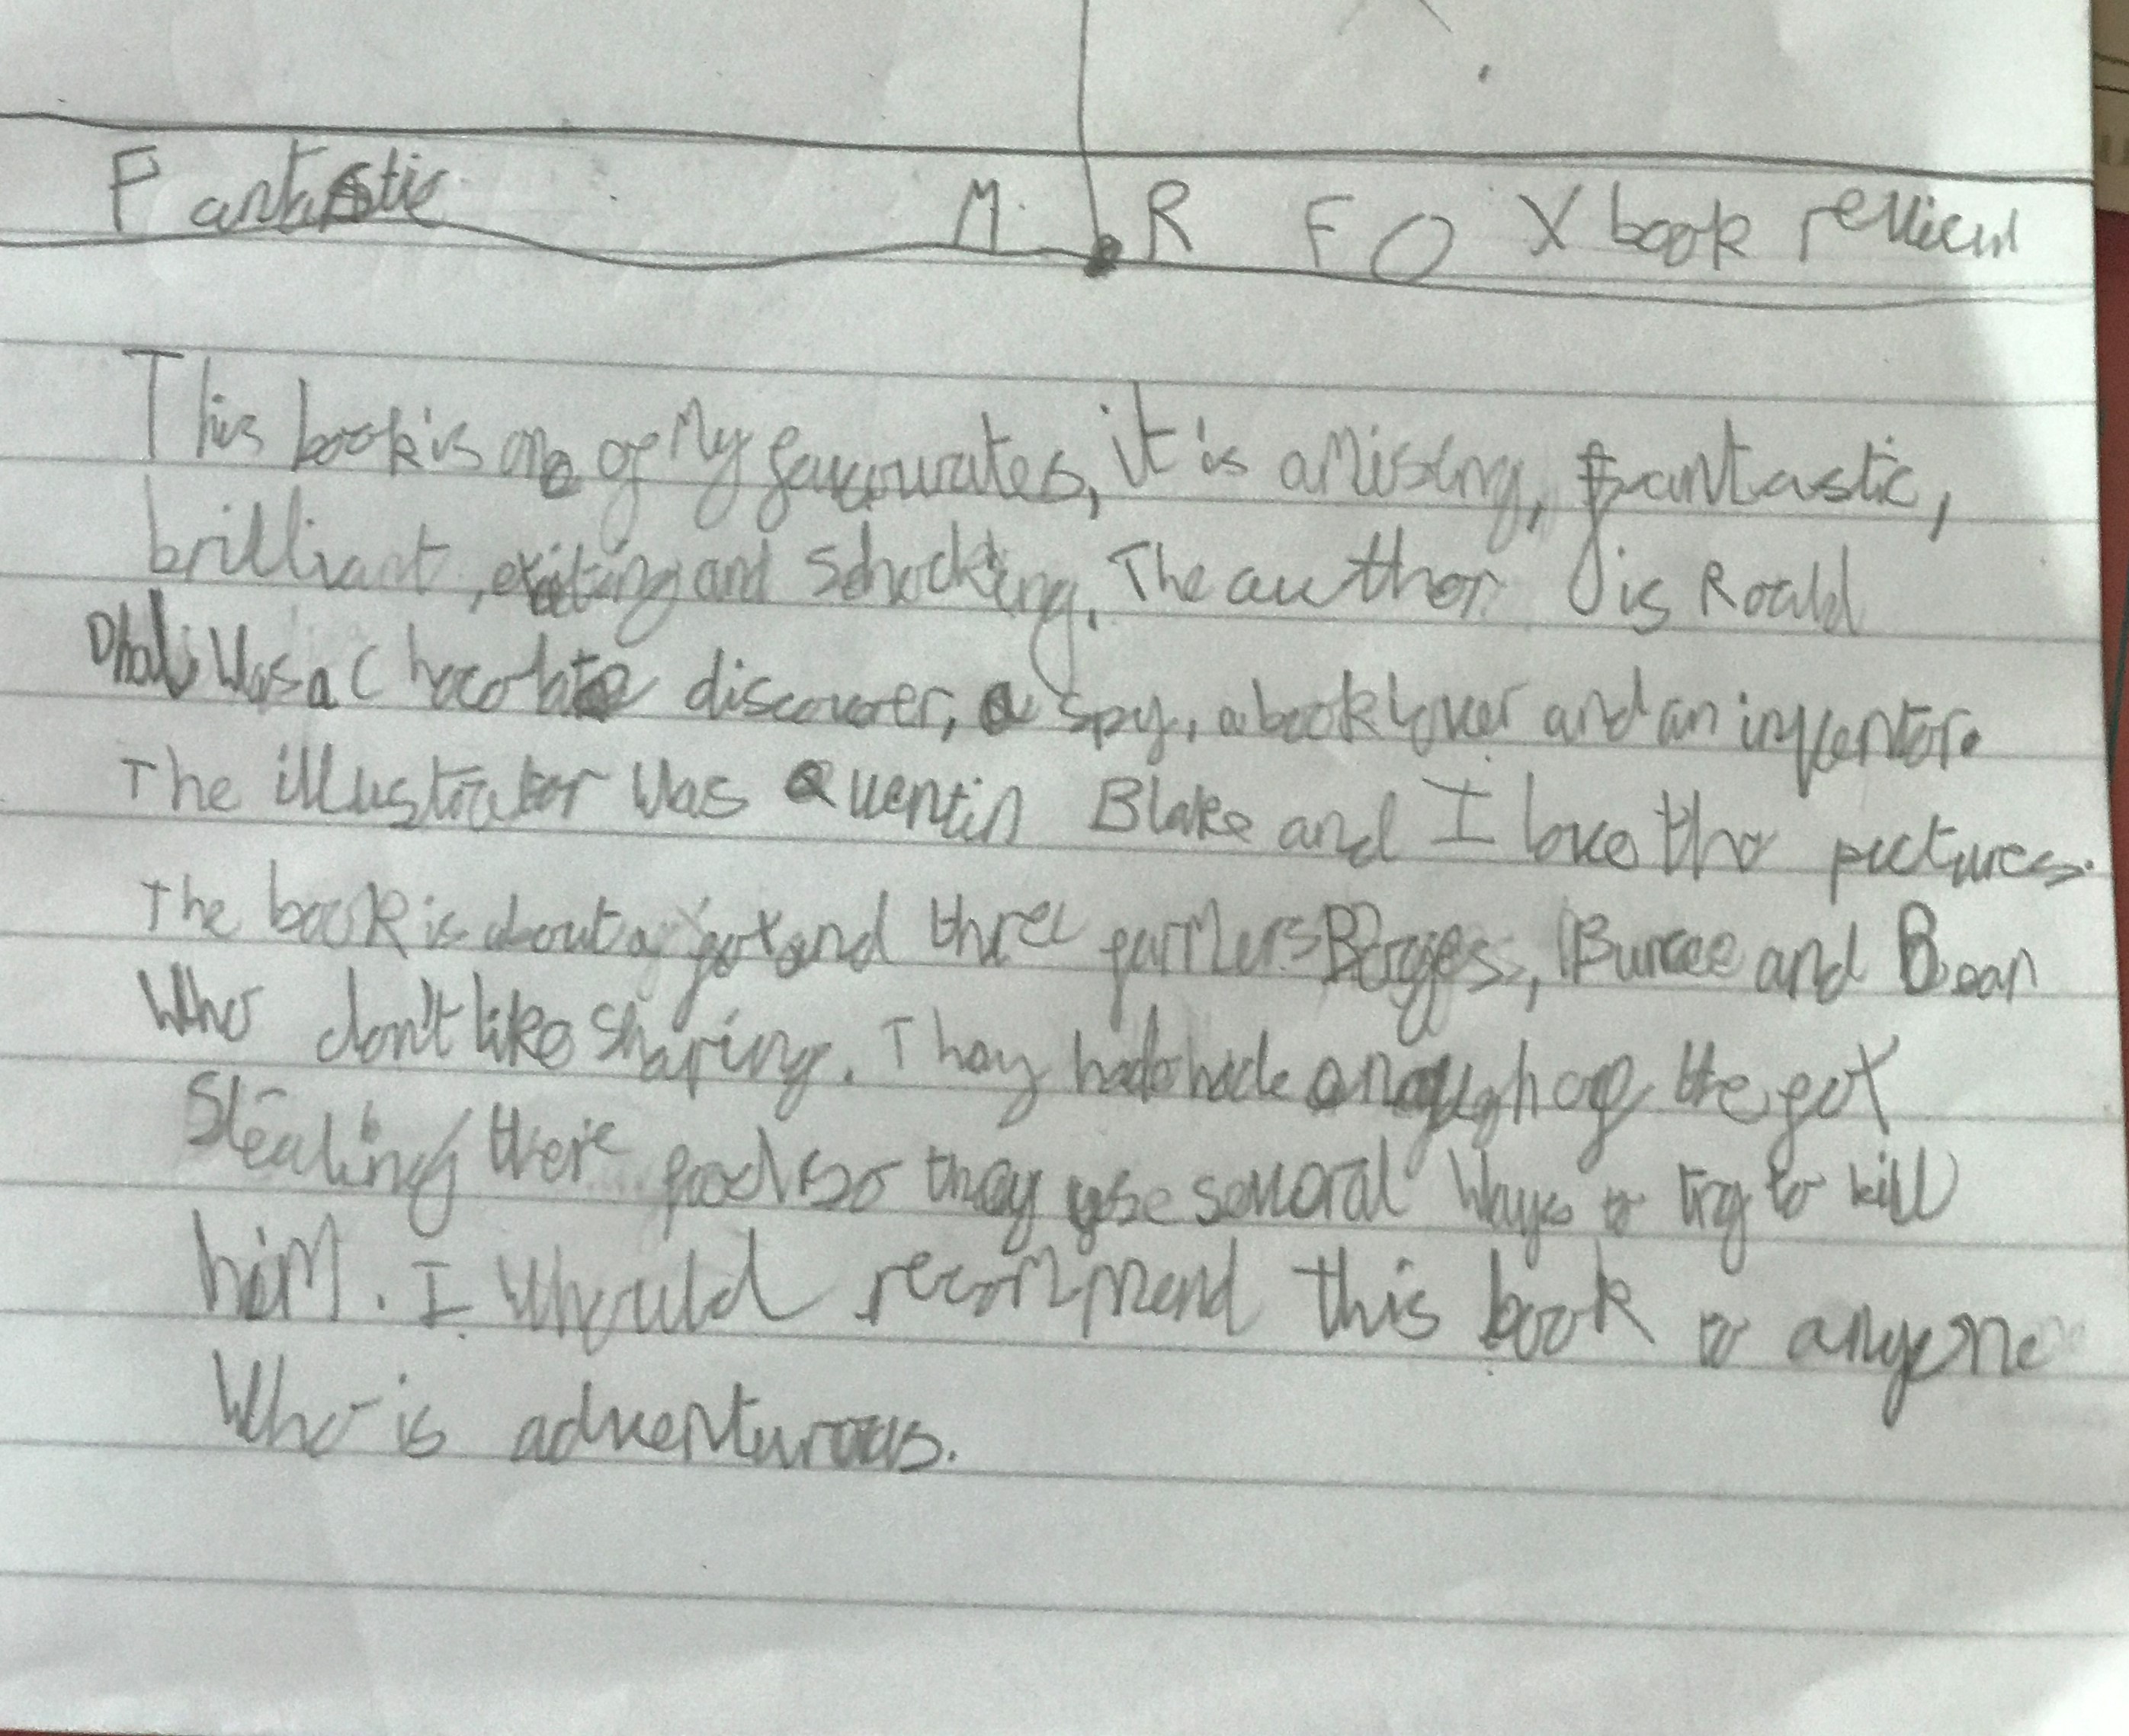 Fantastic M.R FOX book reviewu
This book is one of My favourates, it is amising, fantastic,
brilliant, exiting and schocking. The author is Roald
Dhal. Was a chocolate discoverer, a spy, a book lover and an inventor.
The illustrator was Quentin Blake and I love the pictures.
The book is about a fox and three farmers Bogges, Bunce and Bean
Who don't like sharing. They had had enough of the fox
Stealing there food so they use several ways to try to kill
him. I Whould recommend this book to anyone
Who is adventurous.